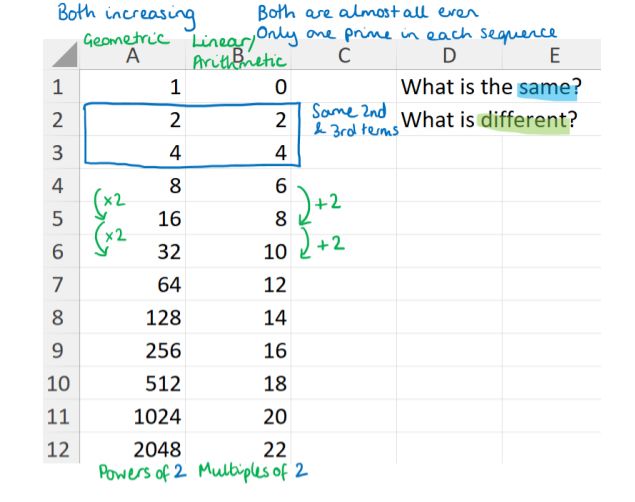 Both increasing Both are almost all even
Geometric Linear/ Only one prime in each sequence
Arithmetic
A B C D E
1 1 0 What is the same?
2 2 2 Same 2nd What is different?
& 3rd terms
3 4 4
4 8 6
×2 +2
5 16 8
×2 +2
6 32 10
7 64 12
8 128 14
9 256 16
10 512 18
11 1024 20
12 2048 22
Powers of 2 Multiples of 2